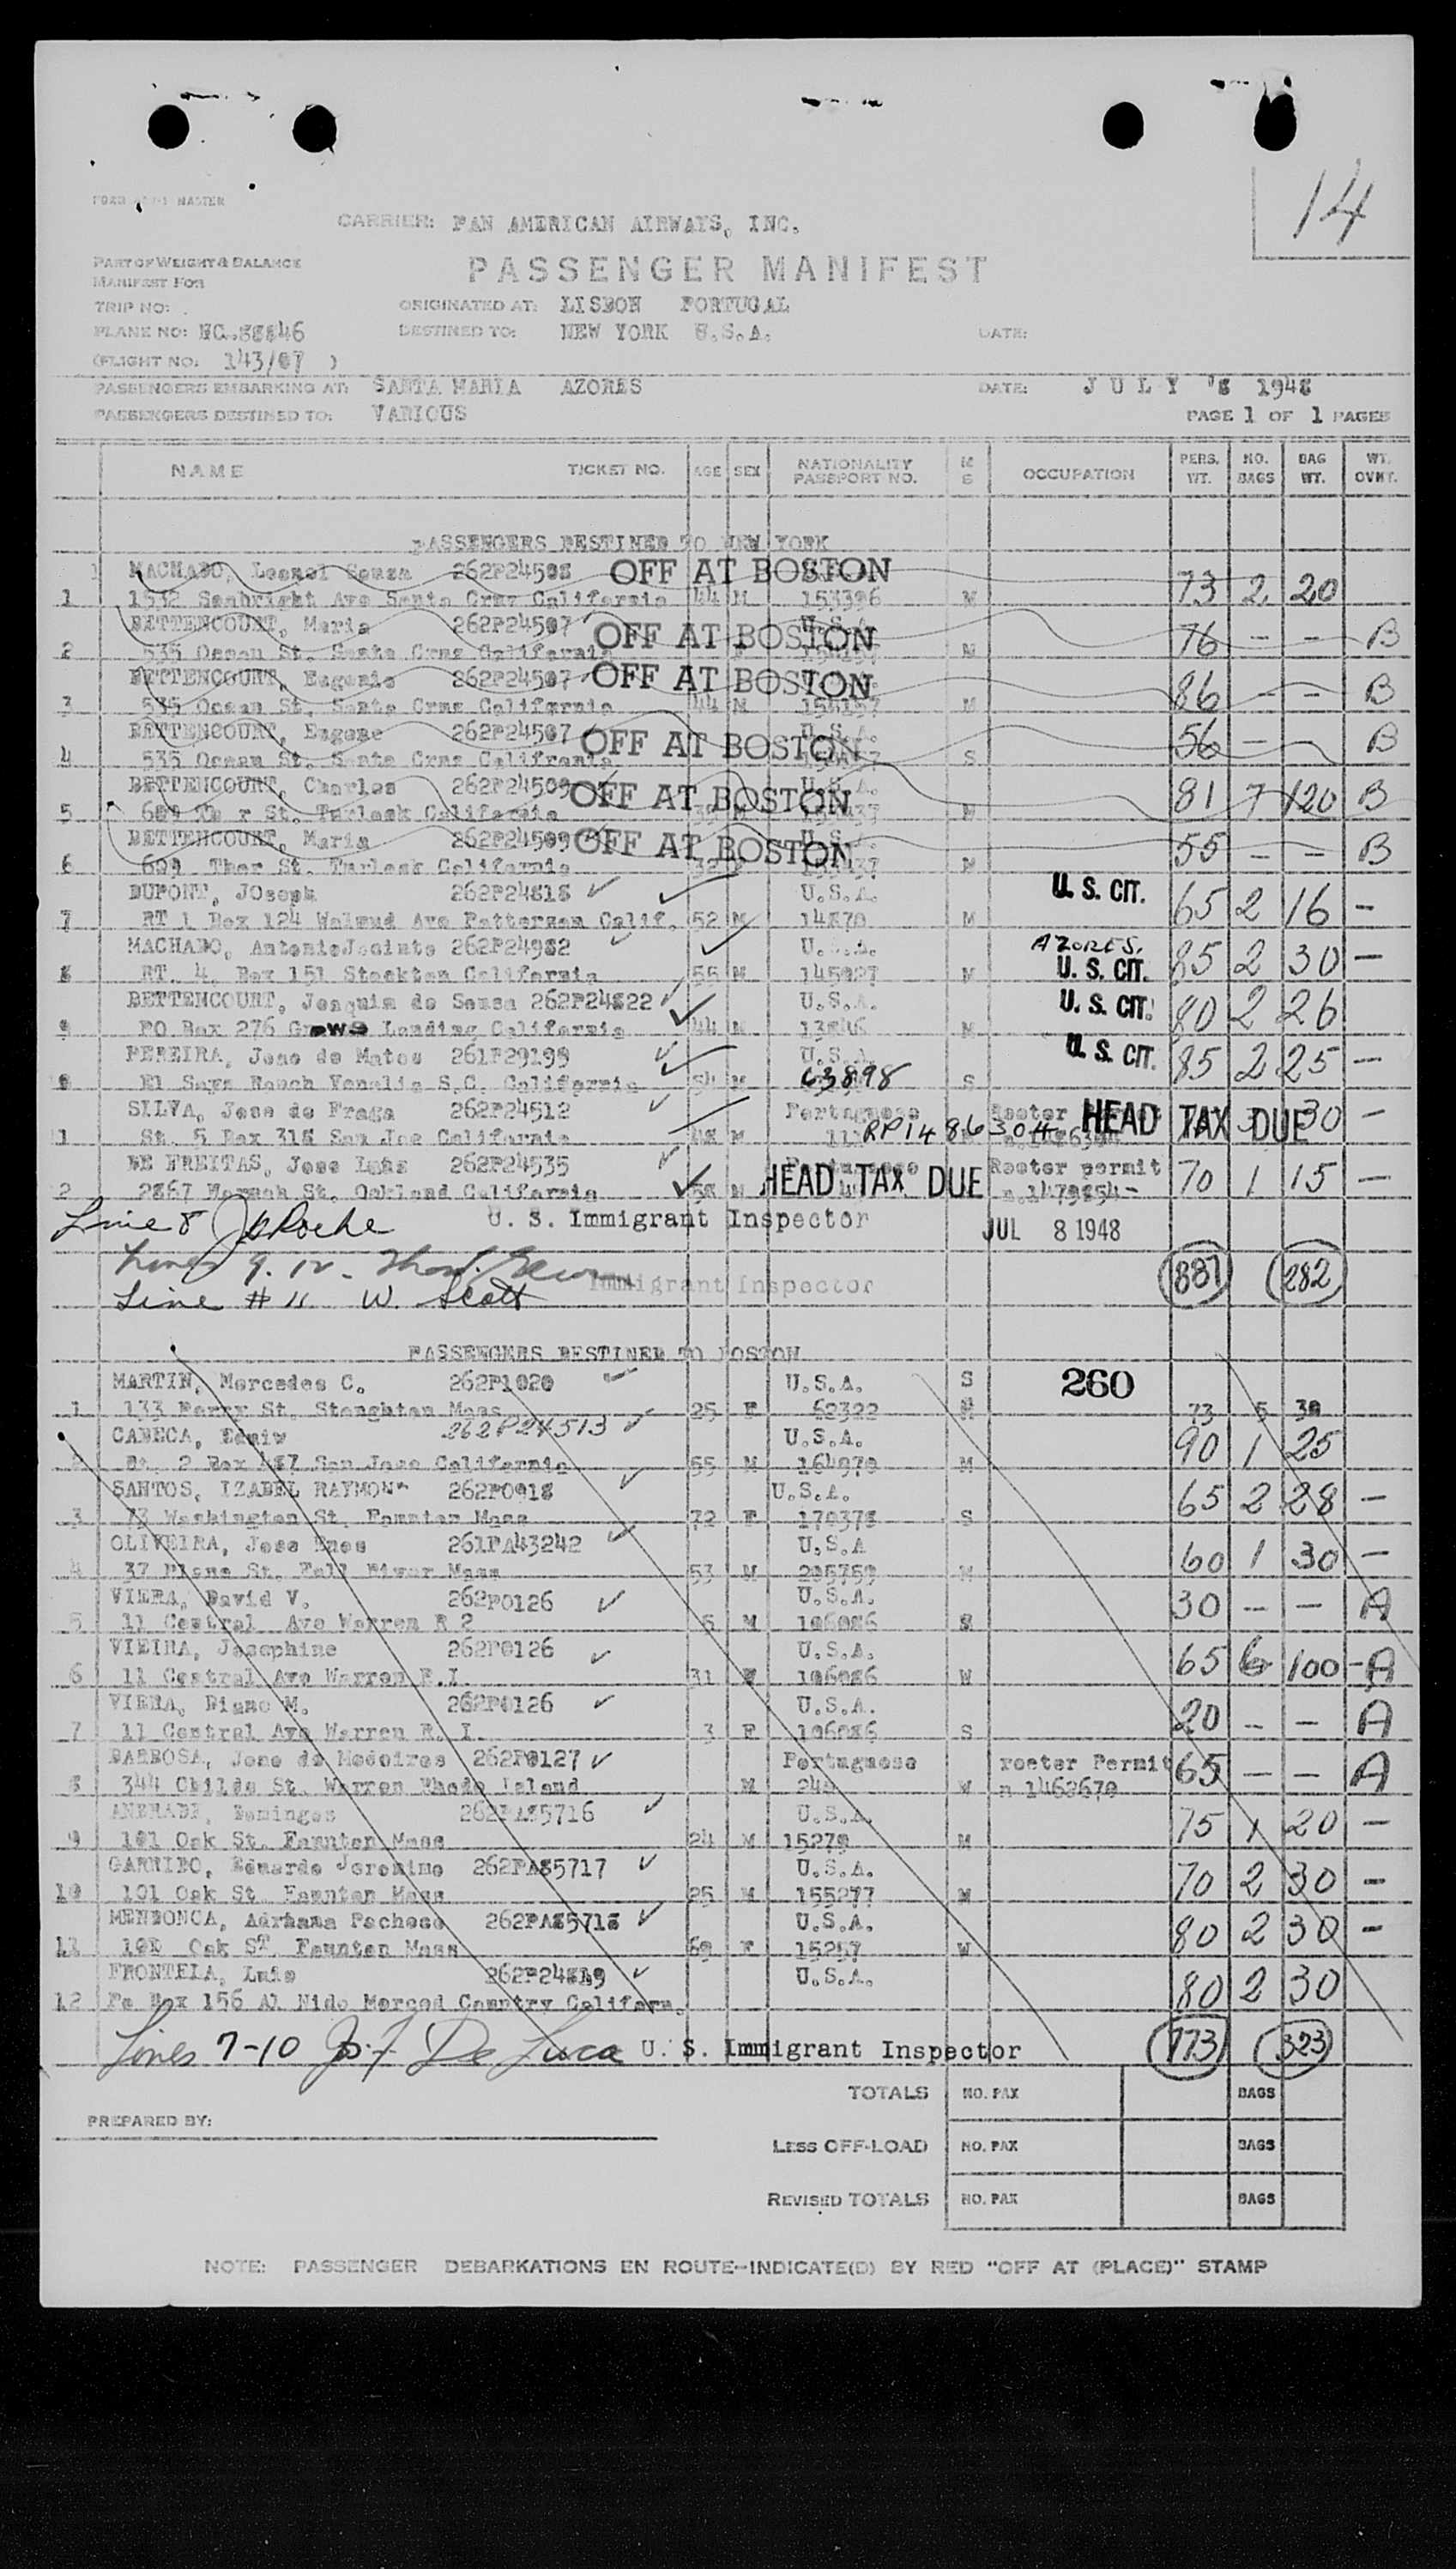 14
CARRIER: PAN AMERICAN AIRWAYS, INC.
PART OF WEIGHT & BALANCE
MANIFEST FOR
PASSENGER MANIFEST
TRIP NO:
ORIGINATED AT: LISBON PORTUGAL
PLANE NO: NC.88846
DESTINED TO: NEW YORK U.S.A. DATE:
(FLIGHT NO: 143/07 )
PASSENGERS EMBARKING AT: SANTA MARIA AZORES DATE: JULY 8 1948
PASSENGERS DESTINED TO: VARIOUS PAGE 1 OF 1 PAGES
NAME TICKET NO. AGE SEX NATIONALITY PASSPORT NO. M S OCCUPATION PERS. WT. NO. BAGS BAG WT. WT. OVNT.
PASSENGERS DESTINED TO NEW YORK
MACHADO, Leonel Souza 262P24508 OFF AT BOSTON
1 1532 Seabright Ave Santa Cruz California 44 M 153396 M 73 2 20
BETTENCOURT, Maria 262P24507 OFF AT BOSTON U.S.A.
2 535 Ocean St. Santa Cruz California M 76 - - B
BETTENCOURT, Eugenio 262P24507 OFF AT BOSTON
3 535 Ocean St. Santa Cruz California 44 M M 86 - - B
BETTENCOURT, Eugene 262P24507 OFF AT BOSTON U.S.A.
4 535 Ocean St. Santa Cruz California S 56 - - B
BETTENCOURT, Charles 262P24509 OFF AT BOSTON U.S.A.
5 609 St. Turlock California M 81 7 120 B
BETTENCOURT, Maria 262P24509 OFF AT BOSTON U.S.
6 609 Thor St. Turlock California 32 M 55 - - B
DUPONT, JOseph 262P24818 ✓ U.S.A. U.S. CIT.
7 RT 1 Box 124 Walnud Ave Patterson Calif. 52 M 14870 M 65 2 16 -
MACHADO, AntonioJacinto 262P24982 U.S.A. AZORES.
8 RT. 4. Box 151 Stockton California 55 M 145027 M U.S. CIT. 85 2 30 -
BETTENCOURT, Joaquim de Sousa 262P24822 ✓ U.S.A. U.S. CIT.
9 PO Box 276 Grews Landing California 44 M 13846 M 80 2 26
PEREIRA, Joao de Matos 261P29198 ✓ U.S.A. U.S. CIT.
10 Ranch S.C. California 54 M 63898 S 85 2 25 -
SILVA, Jose de Fraga 262P24512 ✓ Portuguese HEAD TAX DUE
11 St. 5 Box 318 San Joe California M RP1486304 30 -
DE FREITAS, Jose Luis 262P24535 ✓ Portuguese Reeter permit
2 2867 St. Oakland California 58 M HEAD TAX DUE n.1479854- 70 1 15 -
Line 8 U. S. Immigrant Inspector JUL 8 1948
Lines 9. 12 - Immigrant Inspector 887 282
Line # 11 W. Scott
PASSENGERS DESTINED TO BOSTON
MARTIN, Mercedes C. 262P1020 ✓ U.S.A. S 260
1 133 Perry St. Stoughton Mass 25 F 62322 73 5 30
CANECA, 262P24513 ✓ U.S.A.
2 Rt. 2 Box 487 San Jose California 55 M 164970 M 90 1 25
SANTOS, IZABEL RAYMON 262P0918 ✓ U.S.A.
3 73 Washington St. Faunton Mass 72 F 170378 S 65 2 28 -
OLIVEIRA, Jose Enos 261PA43242 ✓ U.S.A
4 37 Plane St. Fall River Mass 53 M 205759 M 60 1 30 -
VIERA, David V. 262P0126 ✓ U.S.A.
5 11 Central Ave Warren R 2 5 M 106086 S 30 - - A
VIEIRA, Josephine 262P0126 ✓ U.S.A.
6 11 Central Ave Warren R.I. 31 F 106086 W 65 6 100 - A
VIERA, Diane M. 262P0126 ✓ U.S.A.
7 11 Central Ave Warren R. I. 3 F 106086 S 20 - - A
BARBOSA, Jose de Medoires 262P0127 ✓ Portuguese reeter Permit
8 344 Childs St. Warren Rhode Island M 244 W n 1462670 65 - - A
ANDRADE, Domingos 262PA85716 ✓ U.S.A.
9 101 Oak St. Faunton Mass 24 M 15278 M 75 1 20 -
GARRIDO, Eduardo Jeronimo 262PA85717 ✓ U.S.A.
10 101 Oak St Faunton Mass 25 M 155277 M 70 2 30 -
MENDONCA, Adrhama Pacheso 262PA85718 ✓ U.S.A.
11 101 Oak ST. Faunton Mass 69 F 15257 W 80 2 30 -
FRONTEIA, Luis 262P24819 ✓ U.S.A.
12 Po Box 156 Al Nido Merced Country Californ. 80 2 30
Lines 7-10 Jos. F De Luca U. S. Immigrant Inspector 773 323
TOTALS NO. PAX BAGS
PREPARED BY:
LESS OFF-LOAD NO. PAX BAGS
REVISED TOTALS NO. PAX BAGS
NOTE: PASSENGER DEBARKATIONS EN ROUTE-INDICATE(D) BY RED "OFF AT (PLACE)" STAMP